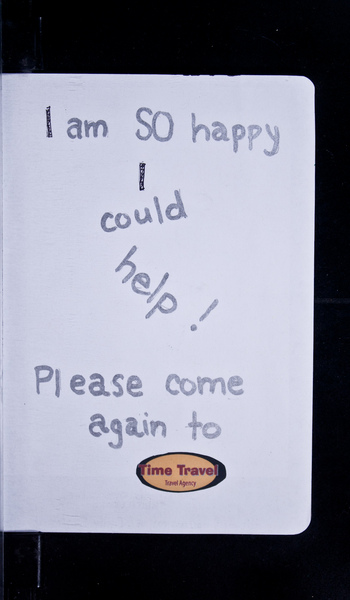 I am SO happy
I
could
help!
Please come
again to
Time Travel
Travel Agency